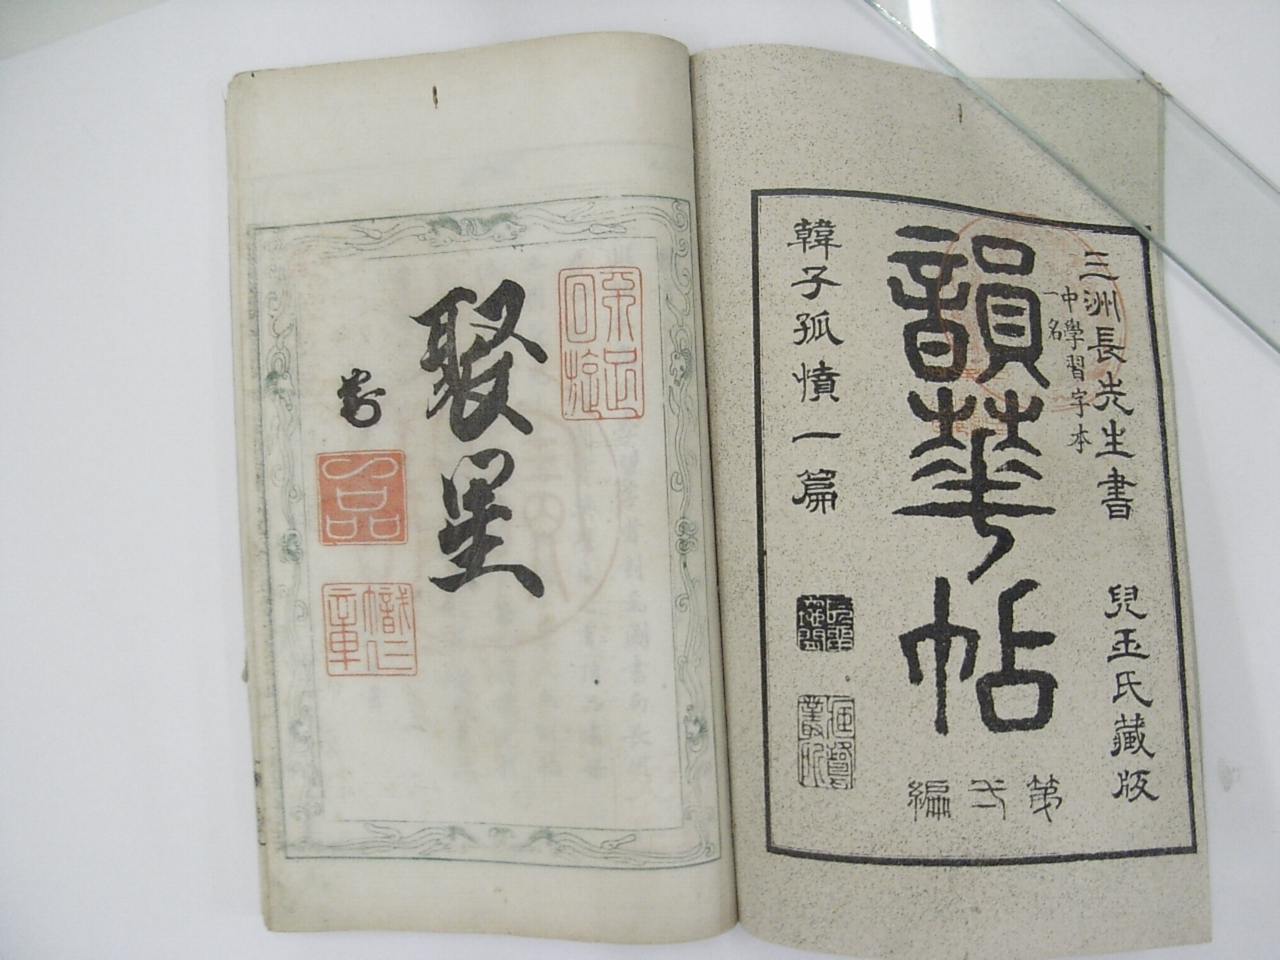 三洲長先生書
兒玉氏藏版
一名
中學習字本
韻華帖
第弍編
韓子孤憤一篇
聚星